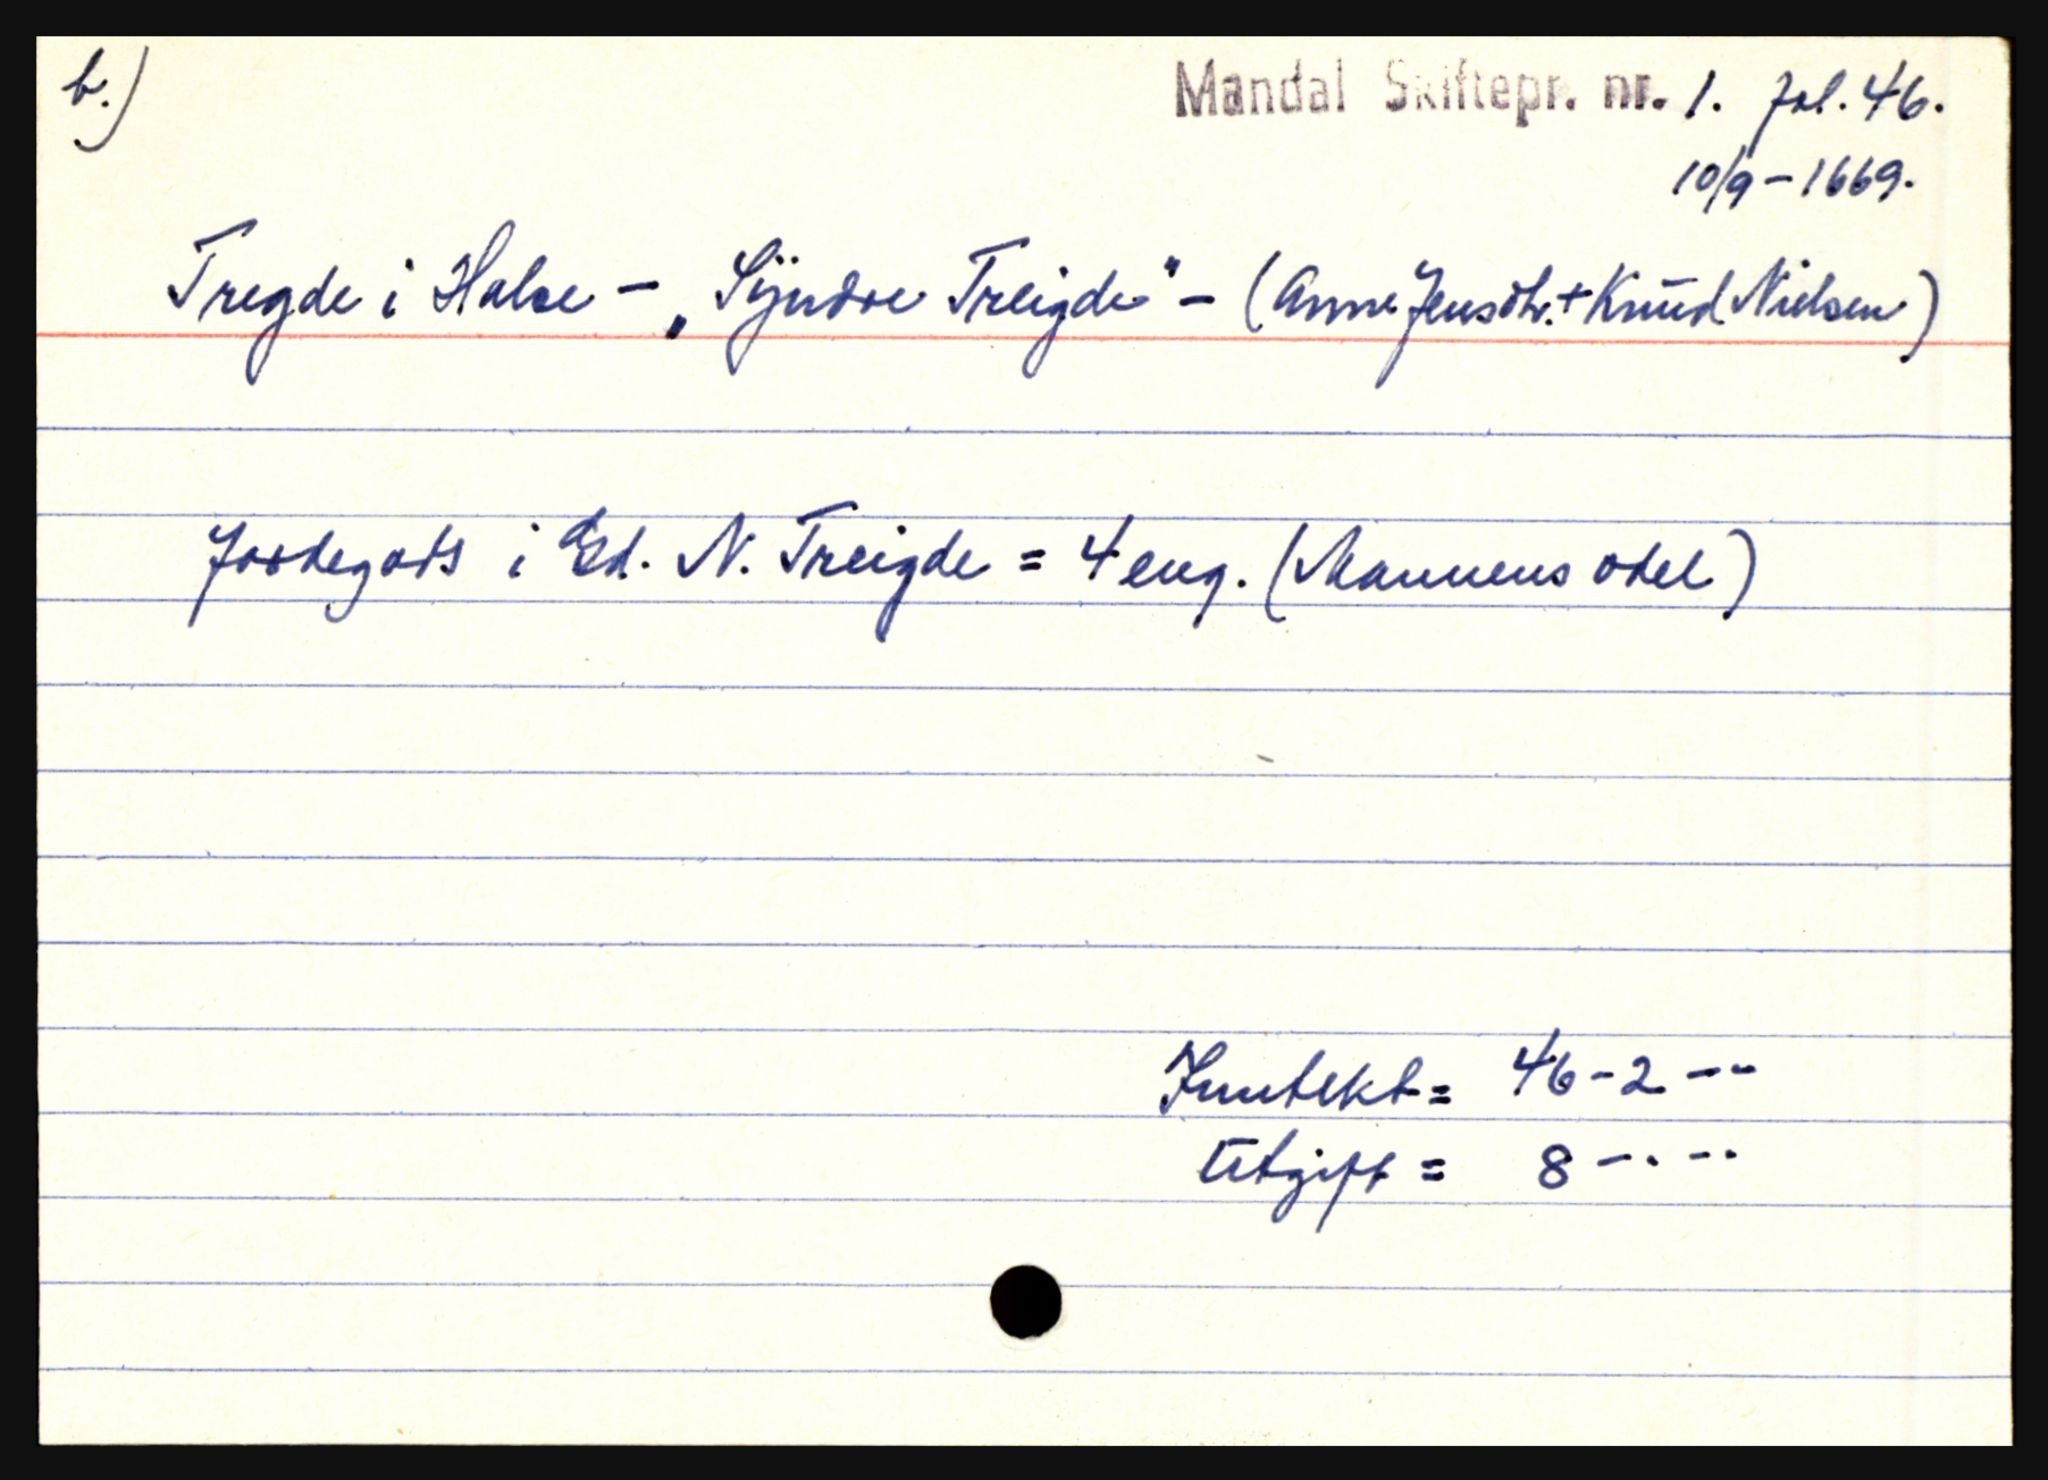 b.)
Mandal Skiftepr. nr. 1. fol. 46.
10/9 - 1669.
Tregde i Halse - „Syndre Treigde" - (Anne Jensdtr. + Knud Nielsen)
Jordegods i N. Treigde = 4 eng. (Mannens odel)
Inntekt = 46 - 2 - -
Utgift = 8 - . - -